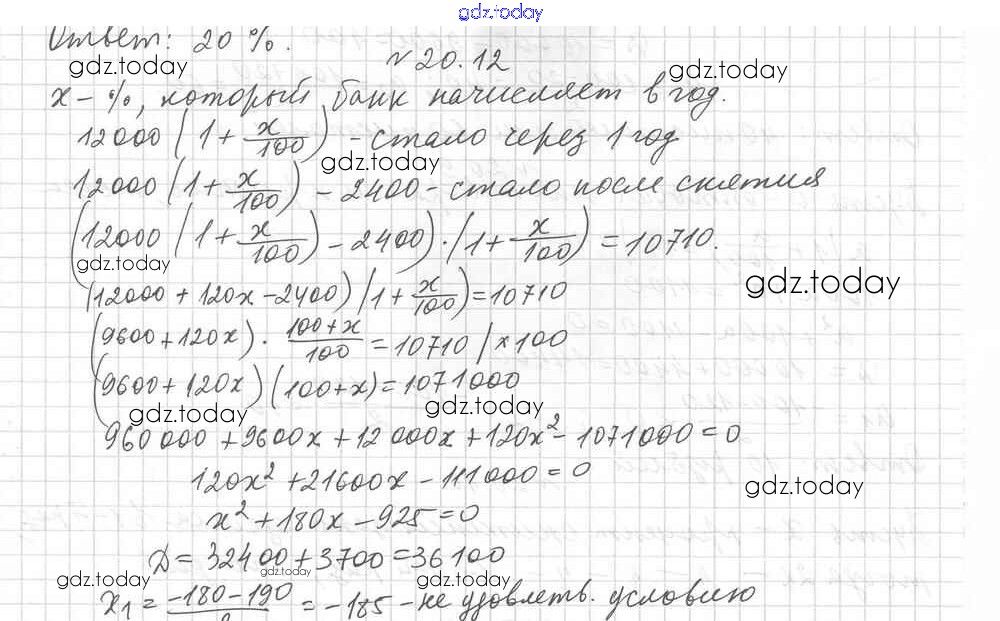 gdz.today
Ответ: 20 %.
№ 20.12
gdz.today gdz.today
x - %, который банк начисляет в год.
12000 (1 + x/100) - стало через 1 год
gdz.today
12000 (1 + x/100) - 2400 - стало после снятия
(12000 (1 + x/100) - 2400) · (1 + x/100) = 10710.
gdz.today gdz.today
(12000 + 120x - 2400) (1 + x/100) = 10710
(9600 + 120x) · (100 + x)/100 = 10710 / × 100
(9600 + 120x) (100 + x) = 1071000
gdz.today gdz.today
960 000 + 9600x + 12 000x + 120x² - 1071000 = 0
120x² + 21600x - 111000 = 0
gdz.today
x² + 180x - 925 = 0
D = 32400 + 3700 = 36100
gdz.today gdz.today gdz.today
x₁ = (-180 - 190)/2 = -185 - не удовлетв. условию